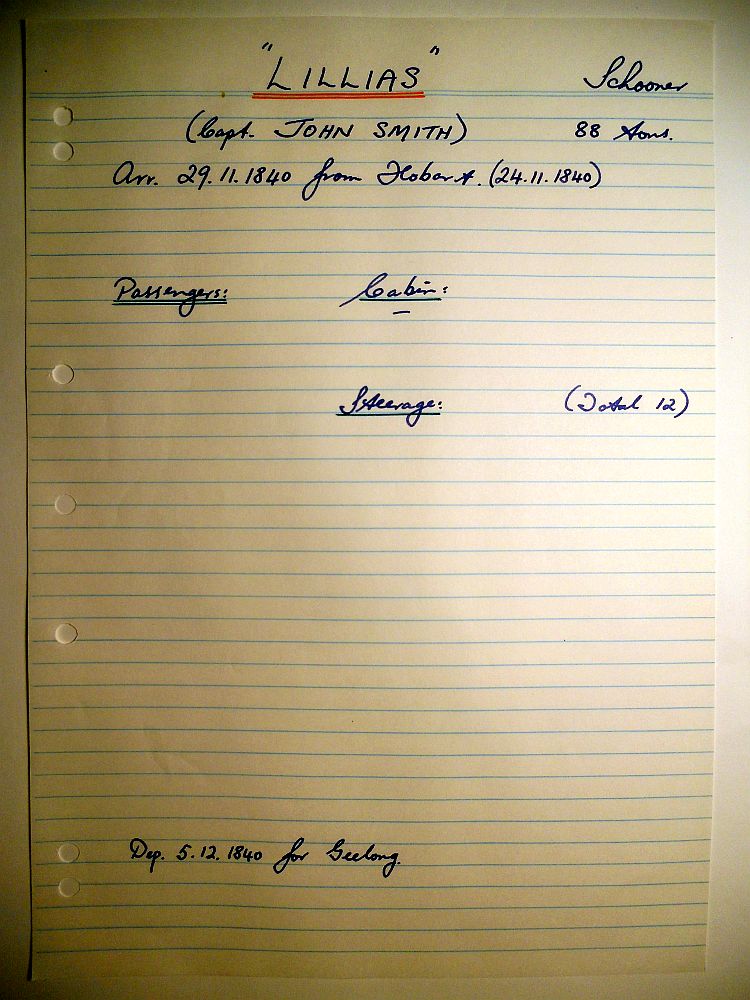 "LILLIAS" Schooner
(Capt. JOHN SMITH) 88 tons.
Arr. 29.11.1840 from Hobart. (24.11.1840)
Passengers: Cabin:
–
Steerage: (Total 12)
Dep. 5.12.1840 for Geelong.